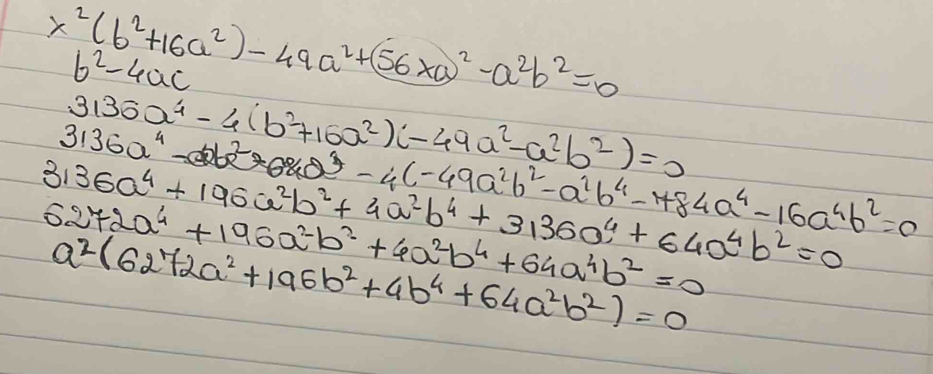 x²(b²+16a²)-49a²+(56xa)²-a²b²=0
b²-4ac
3136a⁴-4(b²+16a²)(-49a²-a²b²)=0
3136a⁴ -4(-49a²b²-a²b⁴-784a⁴-16a⁴b²=0
3136a⁴+196a²b²+4a²b⁴+3136a⁴+64a⁴b²=0
6272a⁴+196a²b²+4a²b⁴+64a⁴b²=0
a²(6272a²+196b²+4b⁴+64a²b²)=0